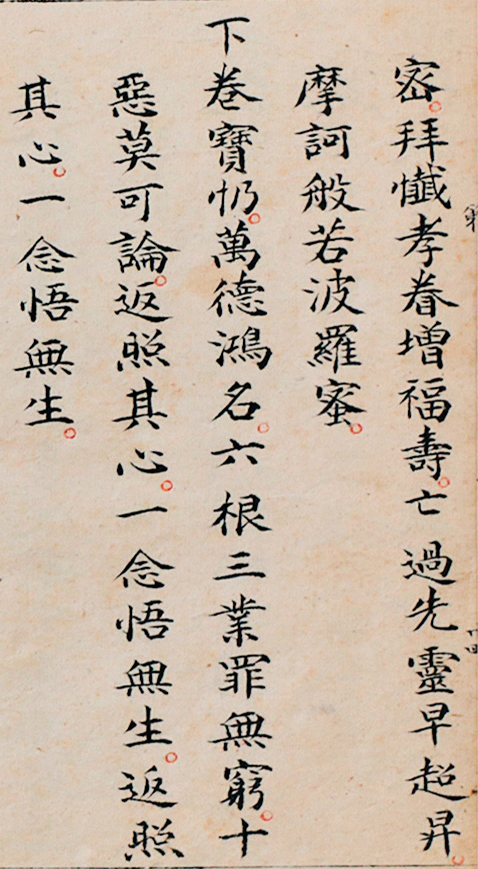 密。拜懺孝眷增福壽。亡過先靈早超昇。
摩訶般若波羅蜜。
下卷寶忏。萬德鴻名。六根三業罪無窮。十
惡莫可論。返照其心。一念悟無生。返照
其心。一念悟無生。